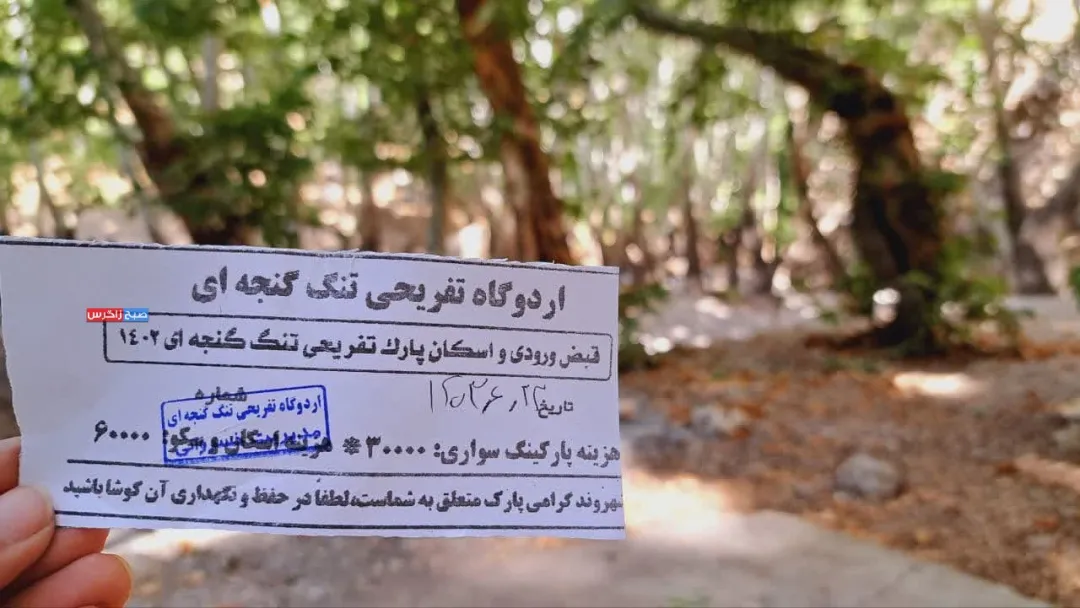 اردوگاه تفریحی تنگ گنجه ای
صبح زاگرس
قبض ورودی و اسکان پارک تفریحی تنگ گنجه ای ۱۴۰۲
شماره
تاریخ
اردوگاه تفریحی تنگ گنجه ای
هزینه پارکینگ سواری: ۳۰۰۰۰ * هزینه اسکان و سکو: ۶۰۰۰۰
شهروند گرامی پارک متعلق به شماست، لطفا در حفظ و نگهداری آن کوشا باشید